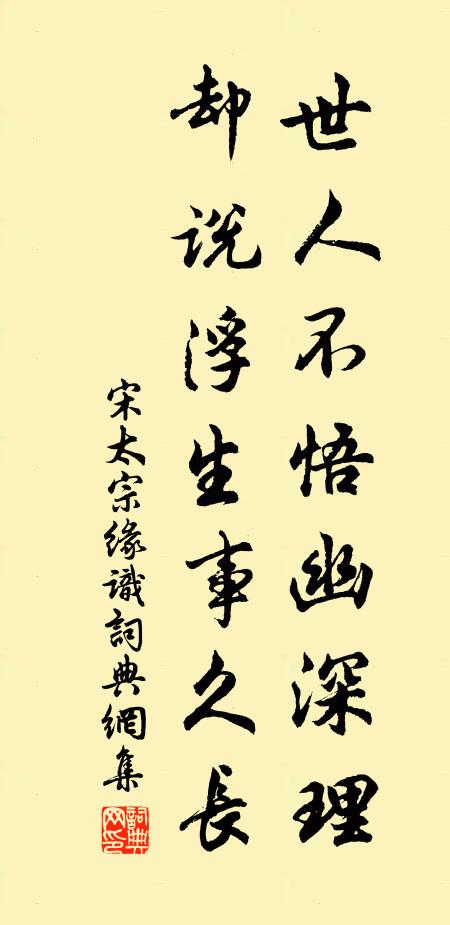 世人不悟幽深理
却说浮生事久長
宋太宗緣識詞典網集
詞典网印